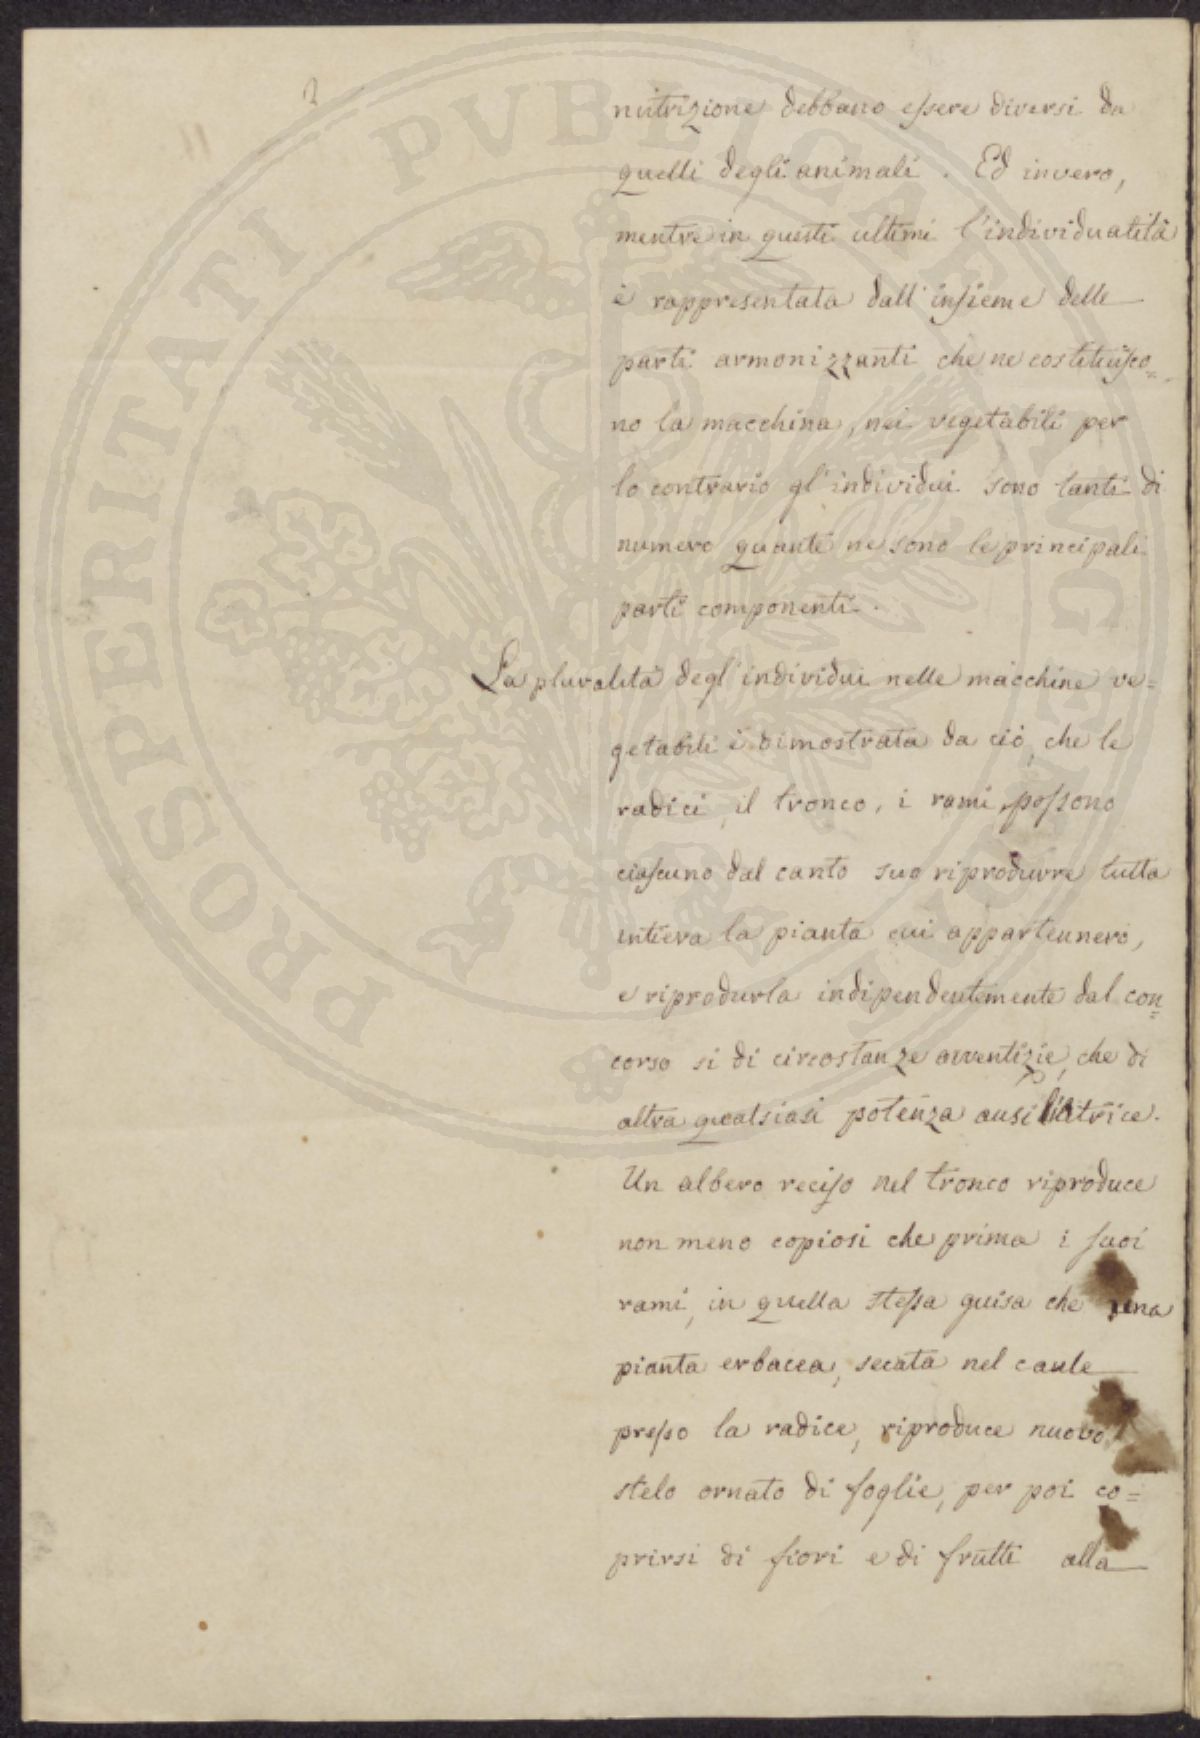 2
nutrizione debbano essere diversi da
quelli degli animali. Ed invero,
mentre in questi ultimi l'individualità
è rappresentata dall'insieme delle
parti armonizzanti che ne costituisco=
no la macchina, nei vegetabili per
lo contrario gl'individui sono tanti di
numero quante ne sono le principali
parti componenti.
La pluralità degl'individui nelle macchine ve=
getabili è dimostrata da ciò, che le
radici, il tronco, i rami, possono
ciascuno dal canto suo riprodurre tutta
intiera la pianta cui appartennero,
e riprodurla indipendentemente dal con=
corso sì di circostanze avventizie, che di
altra qualsiasi potenza ausiliatrice.
Un albero reciso nel tronco riproduce
non meno copiosi che prima i suoi
rami, in quella stessa guisa che una
pianta erbacea, secata nel caule
presso la radice, riproduce nuovo
stelo ornato di foglie, per poi co=
prirsi di fiori e di frutti alla
PROSPERITATI PVBLICAE